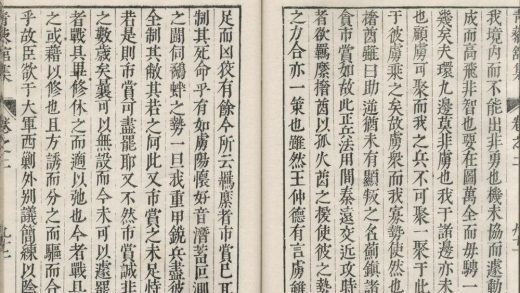 我境內而不能出非勇也機未協而遽動
成而高飛非智也要在圖萬全而毋騁一
幾矣夫環九邊莫非虜也我于諸邊亦未
也顧虜可聚而我之兵不可聚一聚于此
于彼虜乘之矣故虜衆而我寡勢使然也
貪市賞如故此正兵法用間秦遠交近攻時
酋雖曰助逆猶未有顯叛之名薊鎮諸
者欲羈縻酋以孤火酋之援使彼之勢
之力合亦一策也雖然王仲德有言虜雖
足而凶狡有餘今所云羈縻者市賞已耳
制其死命乎有如虜陽懷好音濳蓄叵測
之鬪伺鷸蚌之勢一旦我重甲銳兵盡
全制其敝其若之何此又市賞之未足恃
若是則市賞可盡罷耶又不然市賞誠非
之數歲矣曩可以無設而今未可以遽罷
者戰具畢修休之而適以弛也今者戰具
之或藉以修也且方誘而分之而驅而合
乎故臣欲于大軍西剿外別議簡練以陰
館集 卷之二